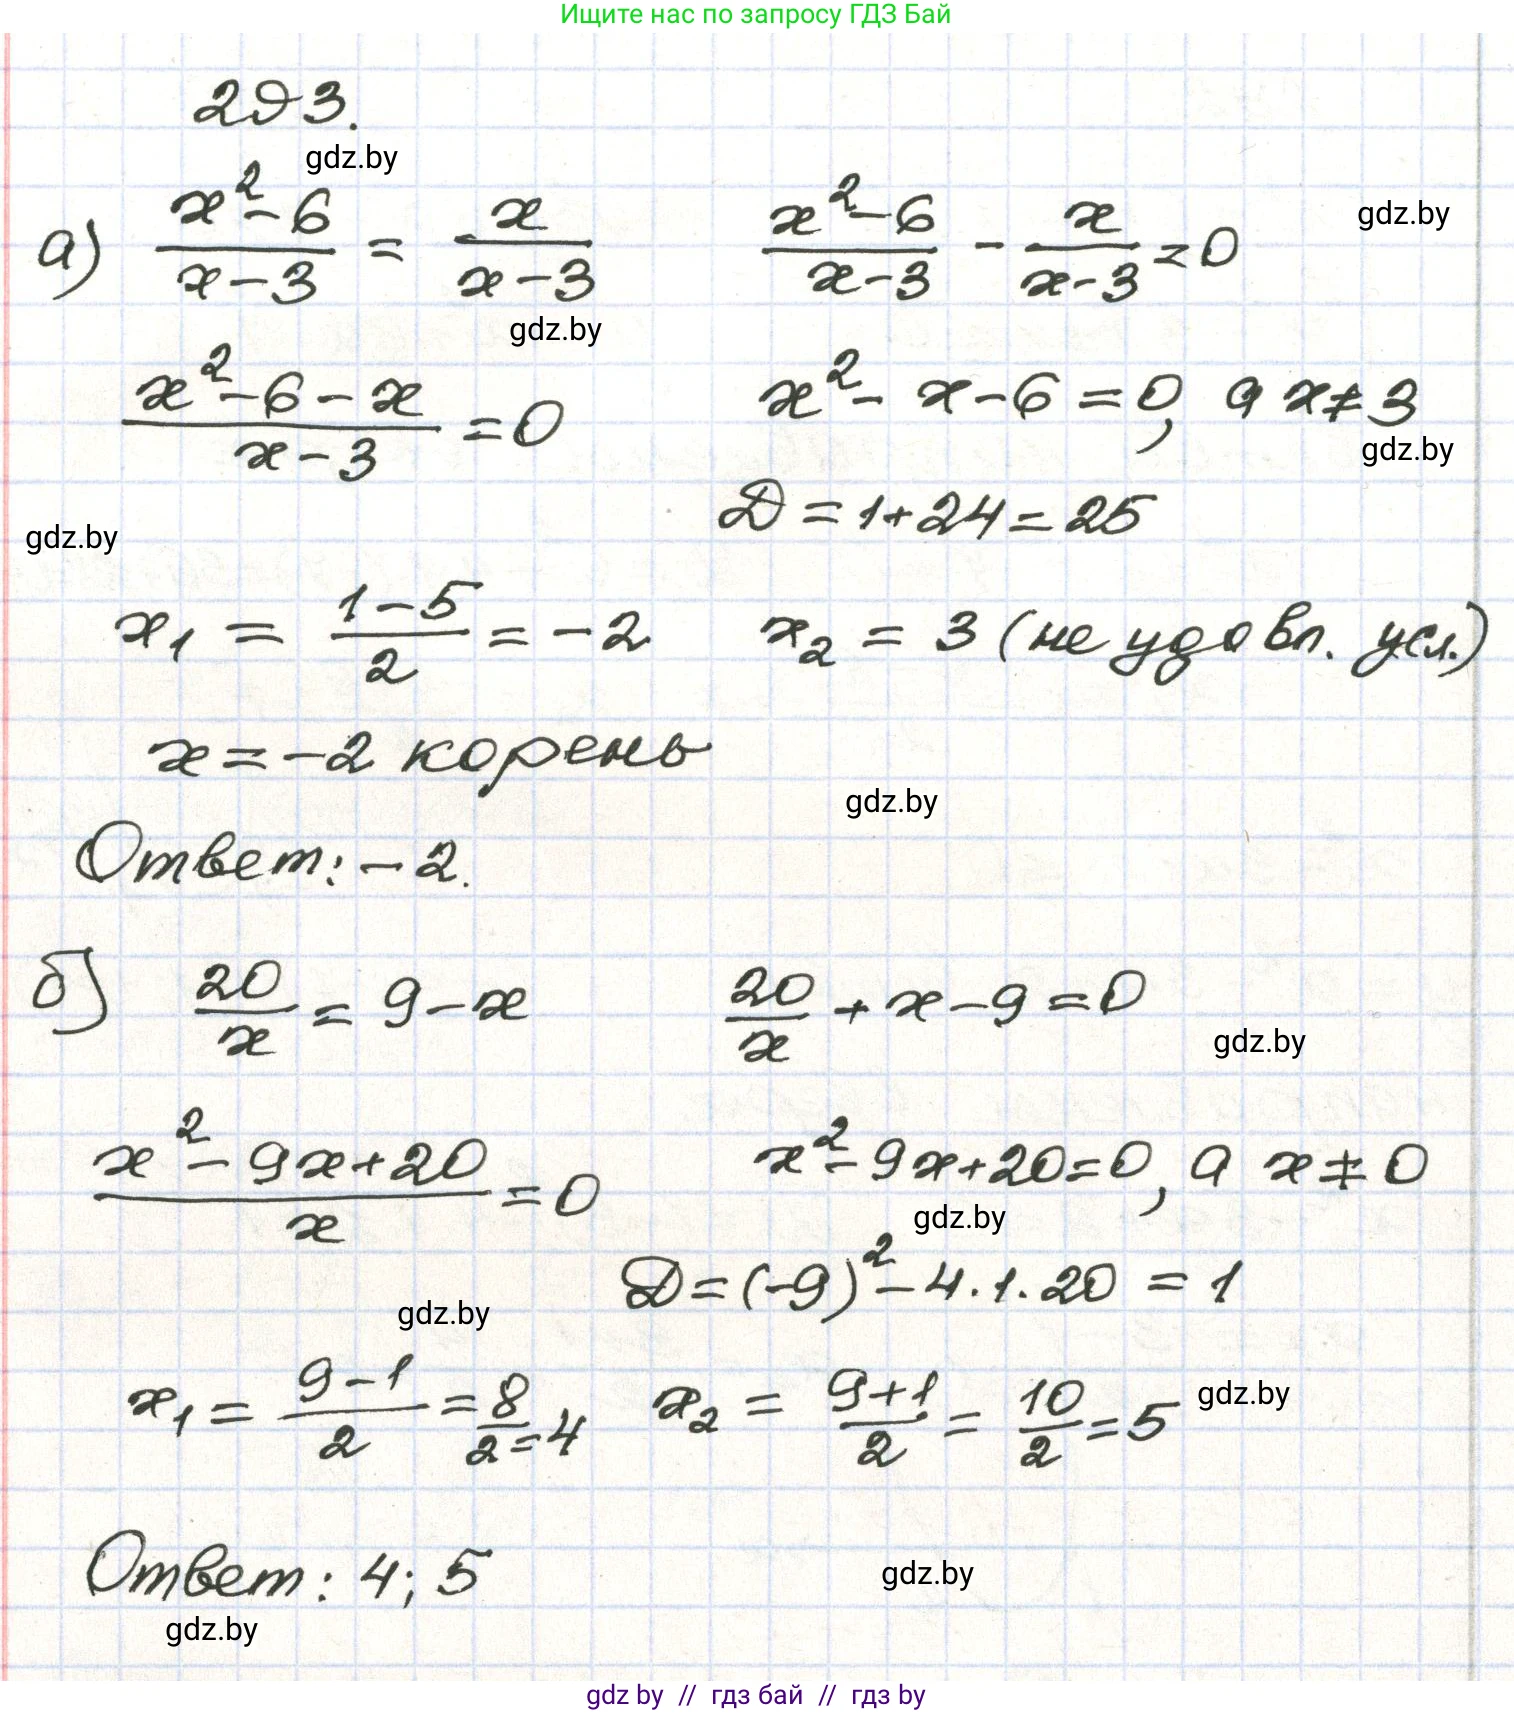 Ищите нас по запросу ГДЗ Бай
293.
gdz.by
а) (x² - 6)/(x - 3) = x/(x - 3)    (x² - 6)/(x - 3) - x/(x - 3) = 0
gdz.by
gdz.by
(x² - 6 - x)/(x - 3) = 0    x² - x - 6 = 0, а x ≠ 3
gdz.by
D = 1 + 24 = 25
gdz.by
x₁ = (1 - 5)/2 = -2    x₂ = 3 (не удовл. усл.)
x = -2 корень
gdz.by
Ответ: -2.
б) 20/x = 9 - x    20/x + x - 9 = 0
gdz.by
(x² - 9x + 20)/x = 0    x² - 9x + 20 = 0, а x ≠ 0
gdz.by
D = (-9)² - 4·1·20 = 1
gdz.by
x₁ = (9 - 1)/2 = 8/2 = 4    x₂ = (9 + 1)/2 = 10/2 = 5
gdz.by
Ответ: 4; 5
gdz.by
gdz.by
gdz by // гдз бай // гдз by